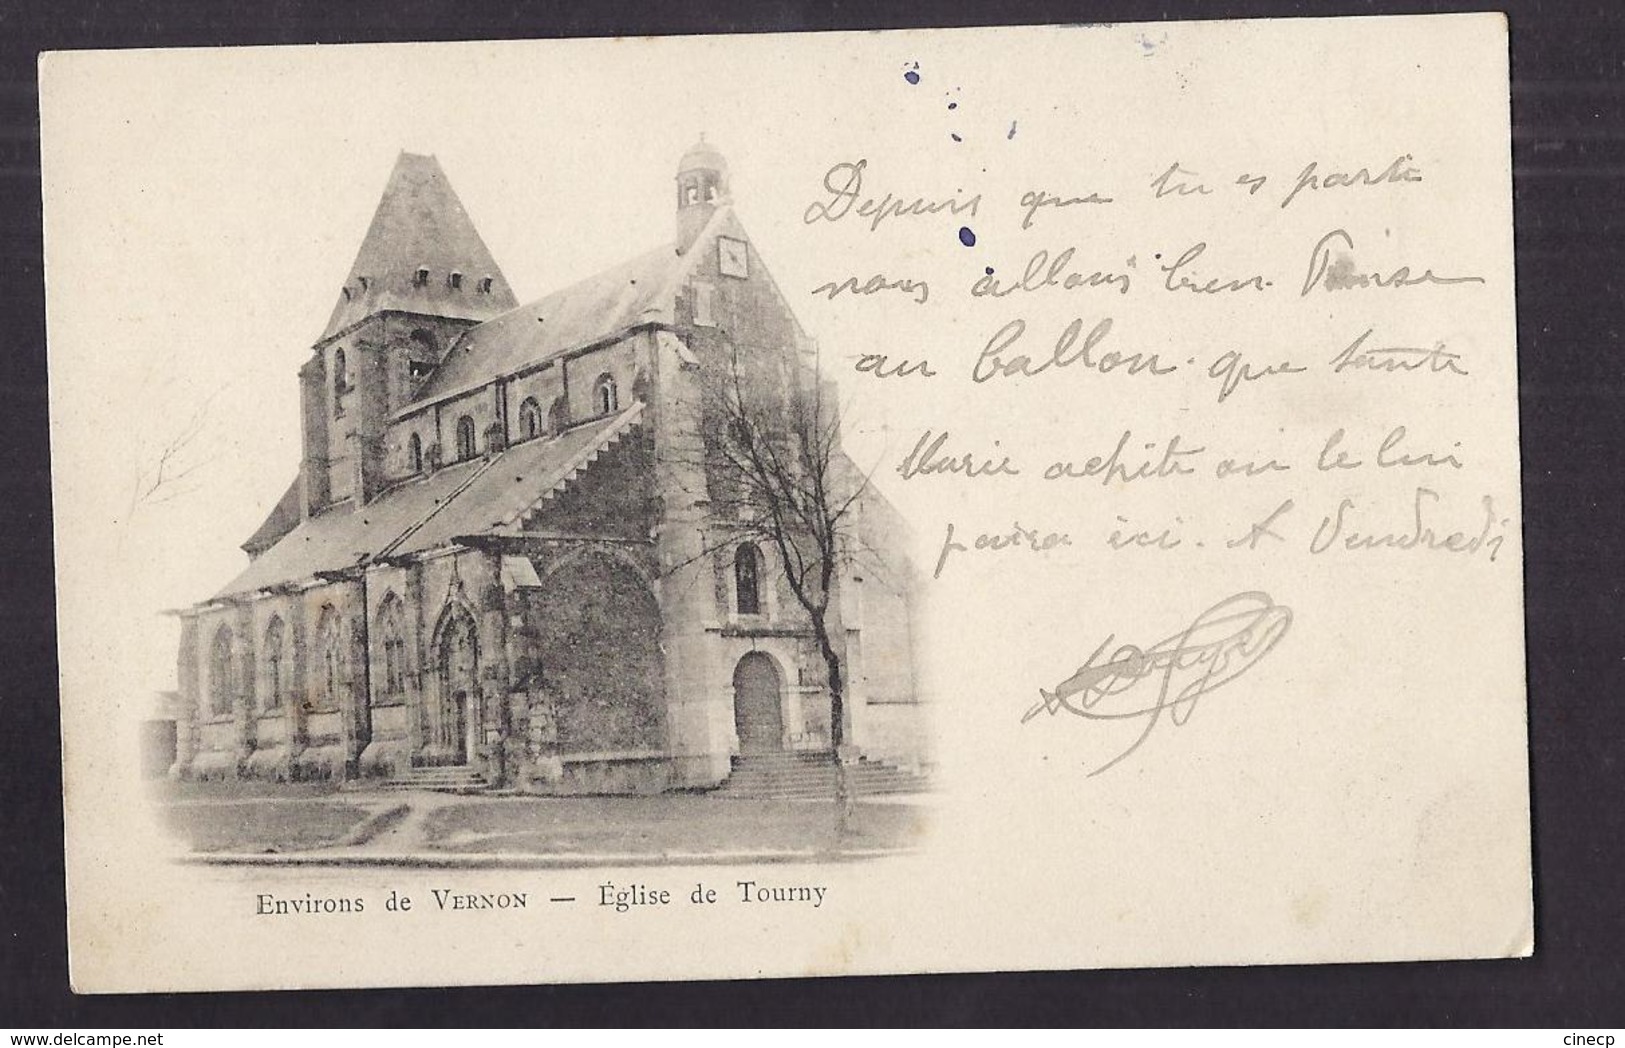 Depuis que tu es partie
nous allons bien. Pense
au ballon. que tante
Marie achète on le lui
paiera ici. A Vendredi
Environs de VERNON — Église de Tourny
delcampe.net
cinecp